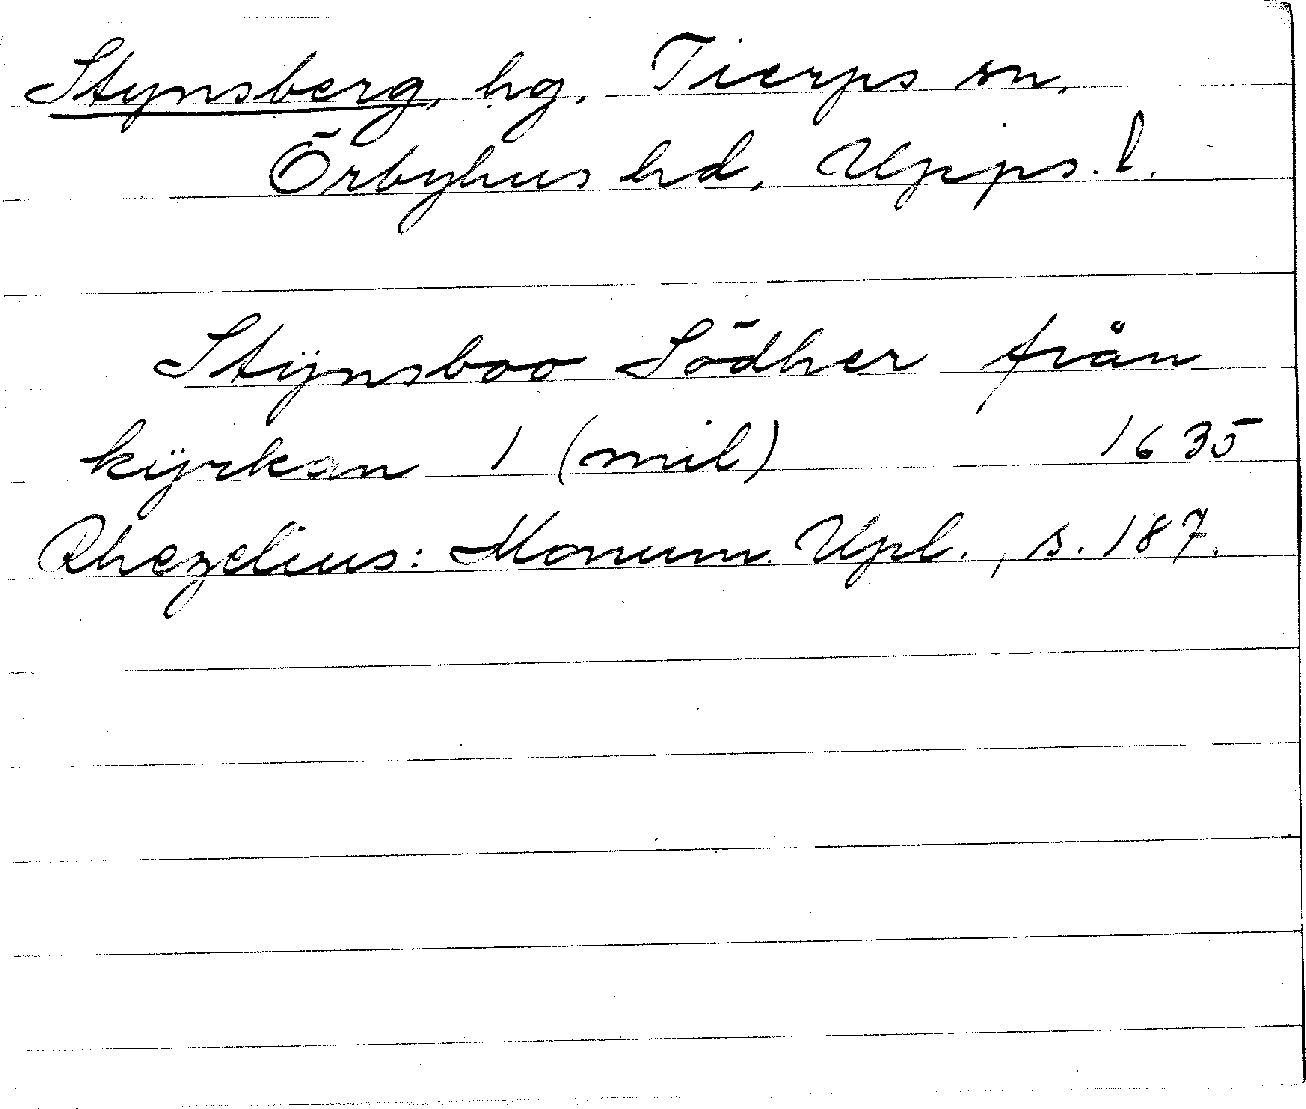 Stynsberg, hg, Tierps sn,
Örbyhus hd, Upps. l.
Stÿnsboo Södher från
kÿrkan 1 (mil) 1635
Rhezelius: Monum. Upl., s. 187.